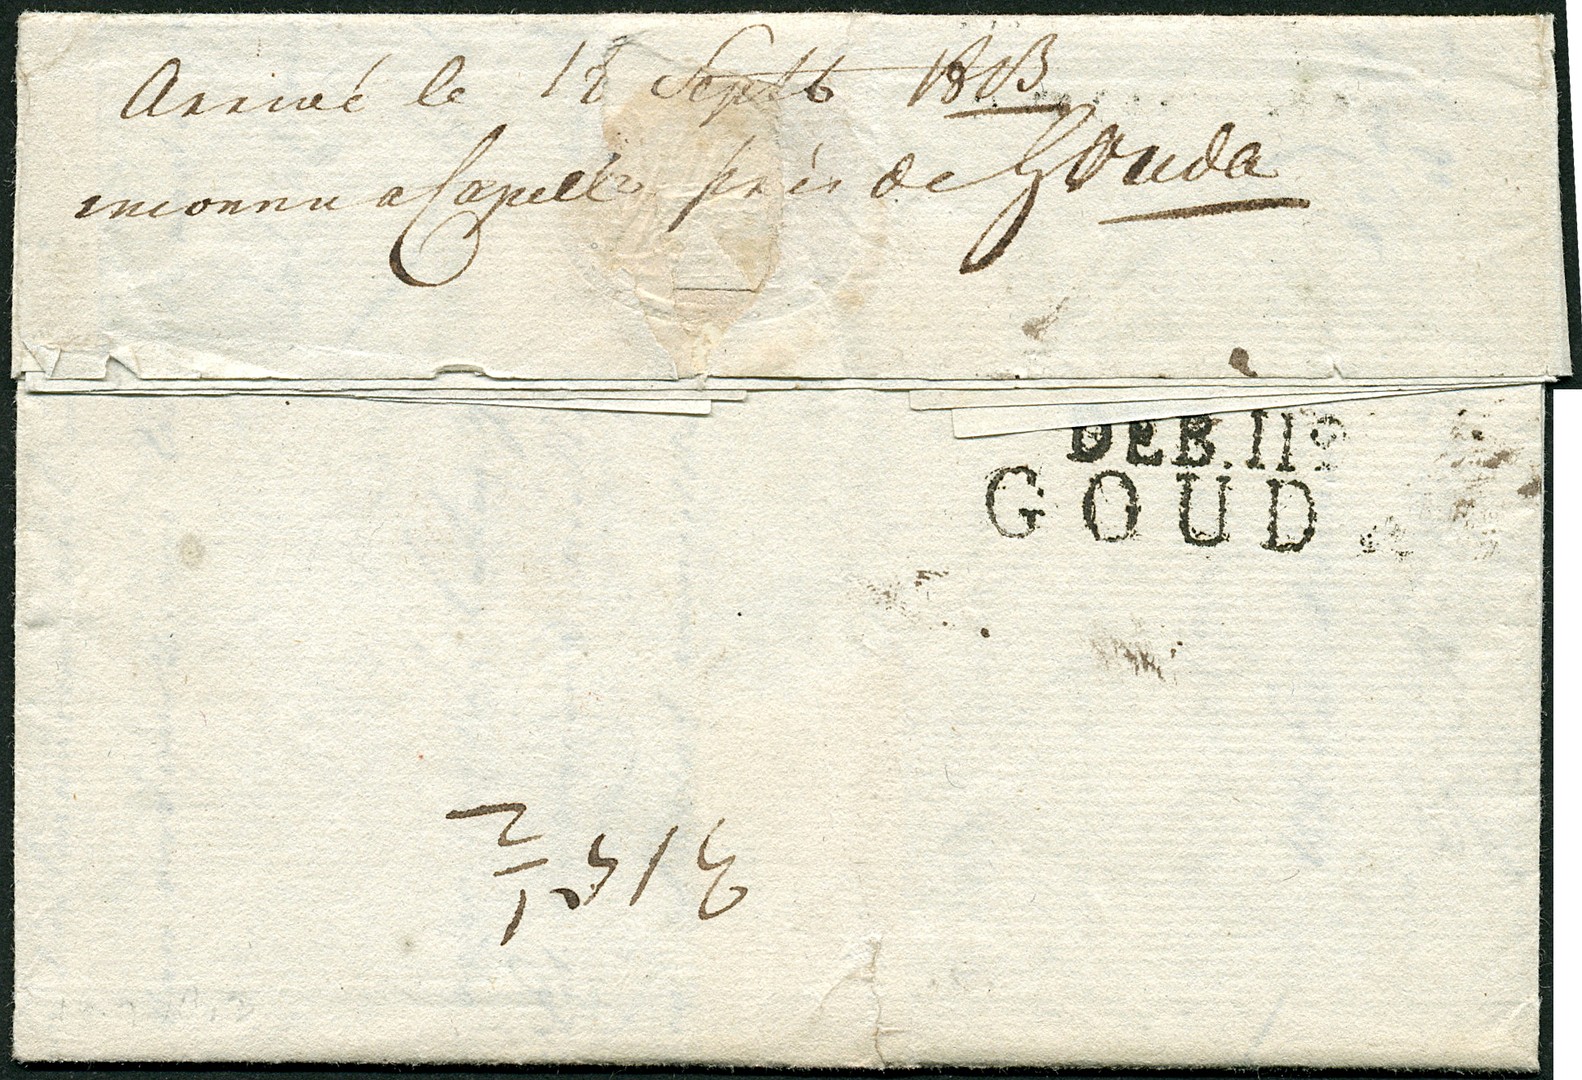 Arrivé le 18 Septb 1813
inconnu a Capelle près de Gouda
DEB. 118
GOUD